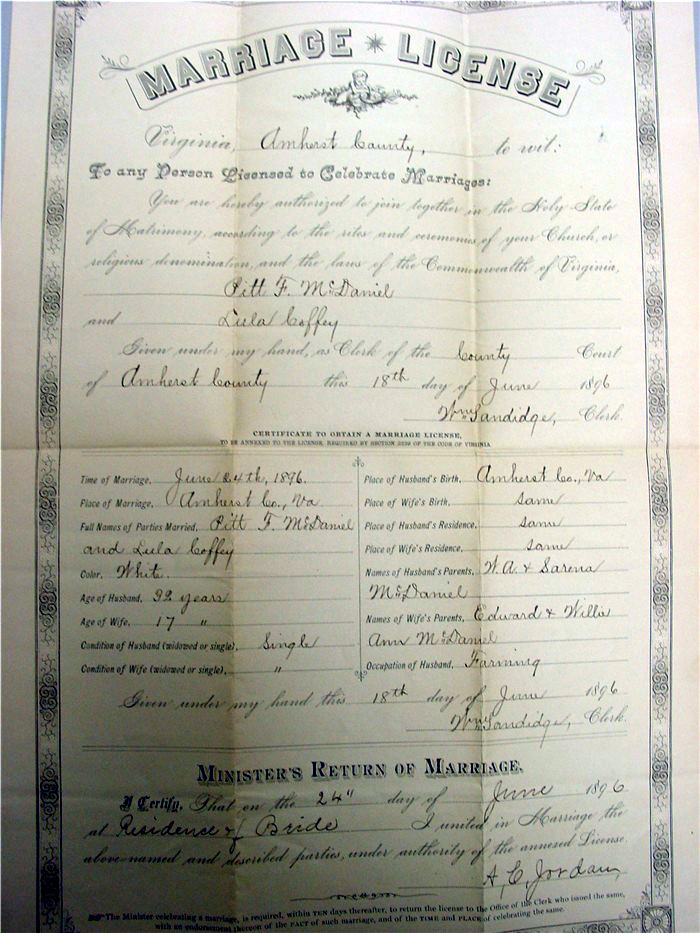 MARRIAGE LICENSE
Virginia, Amherst County, to wit:
To any Person Licensed to Celebrate Marriages:
You are hereby authorized to join together in the Holy State
of Matrimony, according to the rites and ceremonies of your Church, or
religious denomination, and the laws of the Commonwealth of Virginia,
Pitt F. McDaniel
and Lula Coffey
Given under my hand, as Clerk of the County Court
of Amherst County this 18th day of June 1896
Wm Sandidge, Clerk.
CERTIFICATE TO OBTAIN A MARRIAGE LICENSE,
TO BE ANNEXED TO THE LICENSE, REQUIRED BY SECTION OF THE CODE OF VIRGINIA
Time of Marriage, June 24th, 1896.
Place of Marriage, Amherst Co., Va
Full Names of Parties Married, Pitt F. McDaniel
and Lula Coffey
Color, White.
Age of Husband, 32 years
Age of Wife, 17 "
Condition of Husband (widowed or single), Single
Condition of Wife (widowed or single), "
Place of Husband's Birth, Amherst Co., Va
Place of Wife's Birth, same
Place of Husband's Residence, same
Place of Wife's Residence, same
Names of Husband's Parents, W. A. & Sarena
McDaniel
Names of Wife's Parents, Edward & Willie
Ann McDaniel
Occupation of Husband, Farming
Given under my hand this 18th day of June 1896
Wm Sandidge, Clerk.
MINISTER'S RETURN OF MARRIAGE.
I Certify, That on the 24" day of June 1896.
at Residence of Bride I united in Marriage the
above-named and described parties, under authority of the annexed License.
A. C. Jordan
The Minister celebrating a marriage, is required, within TEN days thereafter, to return the license to the Office of the Clerk who issued the same,
with an endorsement thereon of the FACT of such marriage, and of the TIME and PLACE of celebrating the same.